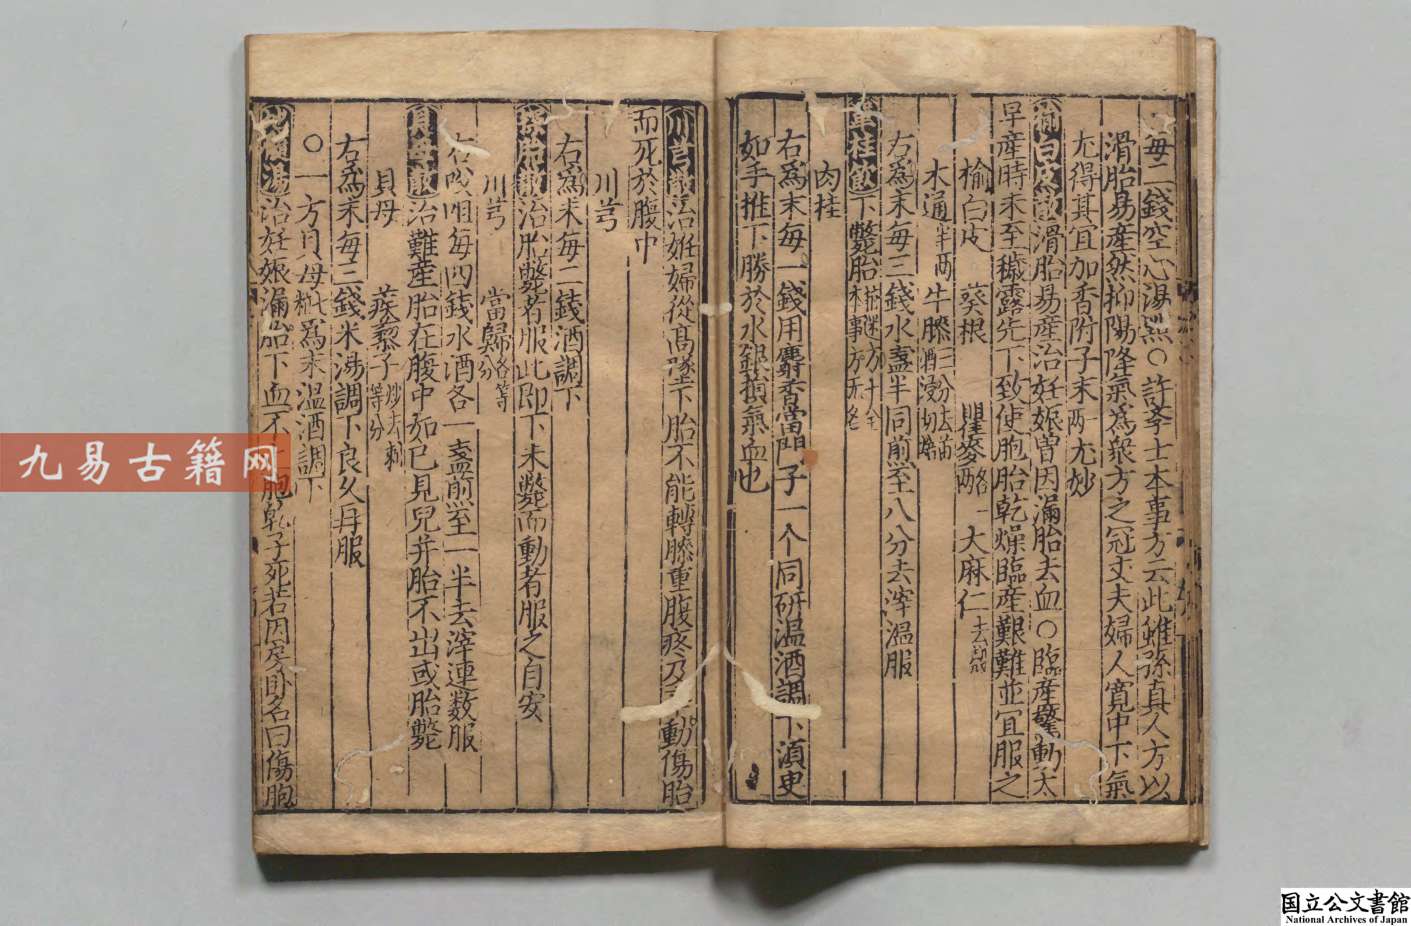 每二錢空心湯點○許學士本事方云此雖孫真人方以
滑胎易産然抑陽降氣爲衆方之冠丈夫婦人寬中下氣
尤得其宜加香附子末一兩尤妙
榆白皮散滑胎易産治妊娠曾因漏胎去血○臨産驚動太
早産時未至穢露先下致使胞胎乾燥臨産艱難並宜服之
榆白皮 葵根 瞿麥各一兩 大麻仁去殼
木通半兩 牛膝三分去苗酒浸切焙
右爲末每三錢水盞半同煎至八分去滓溫服
單桂飲下斃胎
肉桂
右爲末每一錢用麝香當門子一个同研温酒調下須臾
如手推下勝於水銀損氣血也
川芎散治妊婦從高墜下胎不能轉臍重腹疼及 動傷胎
而死於腹中
川芎
右爲末每二錢酒調下
探胎散治胎斃者服此即下未斃而動者服之自安
川芎 當歸各等分
右㕮咀每四錢水酒各一盞煎至一半去滓連数服
貝母散治難産胎在腹中如已見兒并胎不出或胎斃
貝母 蒺藜子炒去刺等分
右爲末每三錢米湯調下良久再服
○一方貝母 爲末温酒調下
湯治妊娠漏胎下血不止胞乾子死若因房 名曰傷胞
九易古籍网
国立公文書館
National Archives of Japan